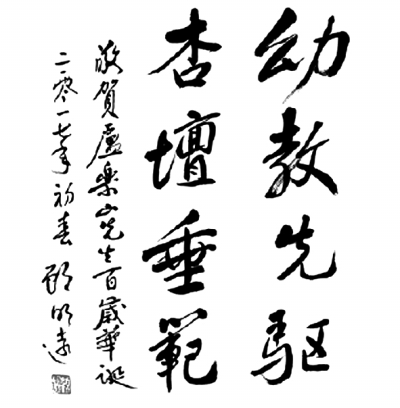 幼教先驱
杏壇垂範
敬賀盧樂山先生百歲華誕
二零一七年初春 顧明遠